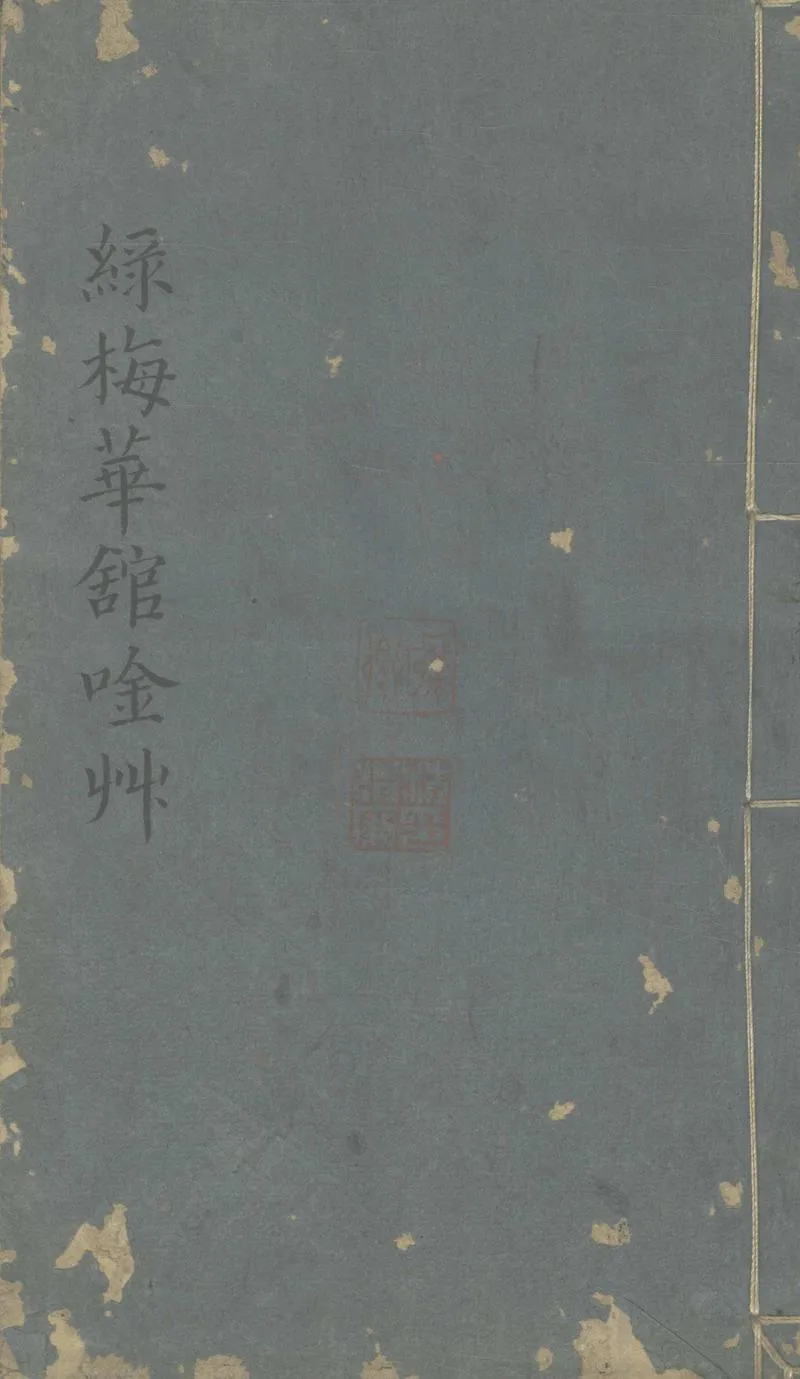 綠梅華舘唫艸